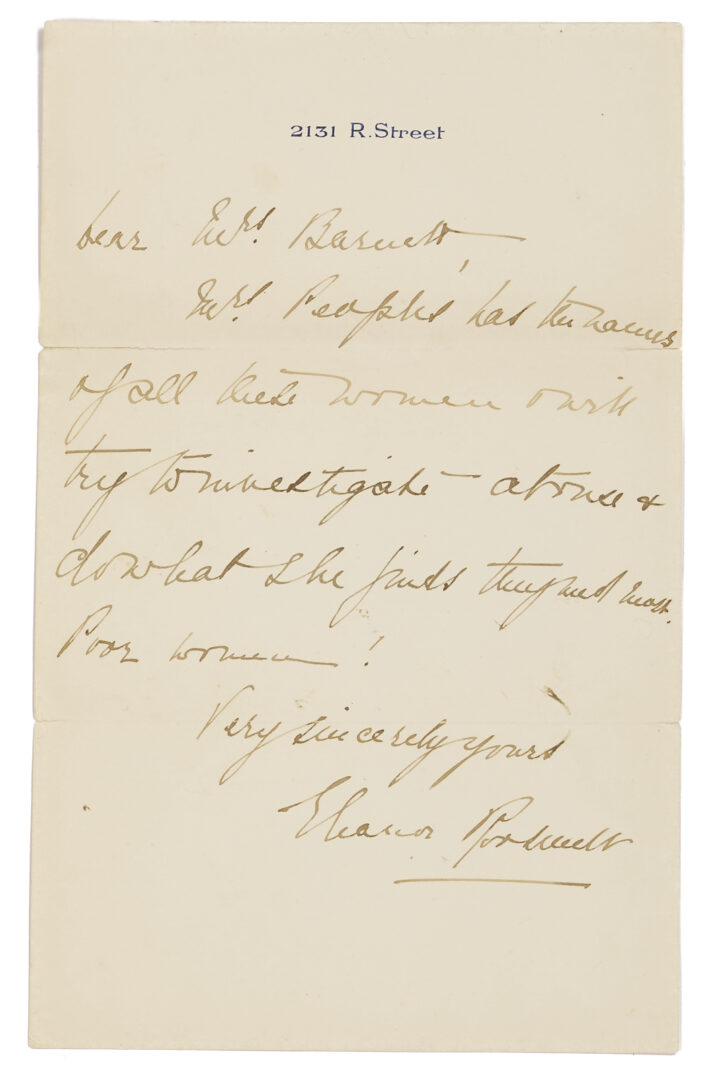 2131 R. Street
Dear Mrs. Barnett,
Mrs. Peoples has the names
of all these women & will
try to investigate at once &
do what she finds they need most.
Poor women!
Very sincerely yours
Eleanor Roosevelt